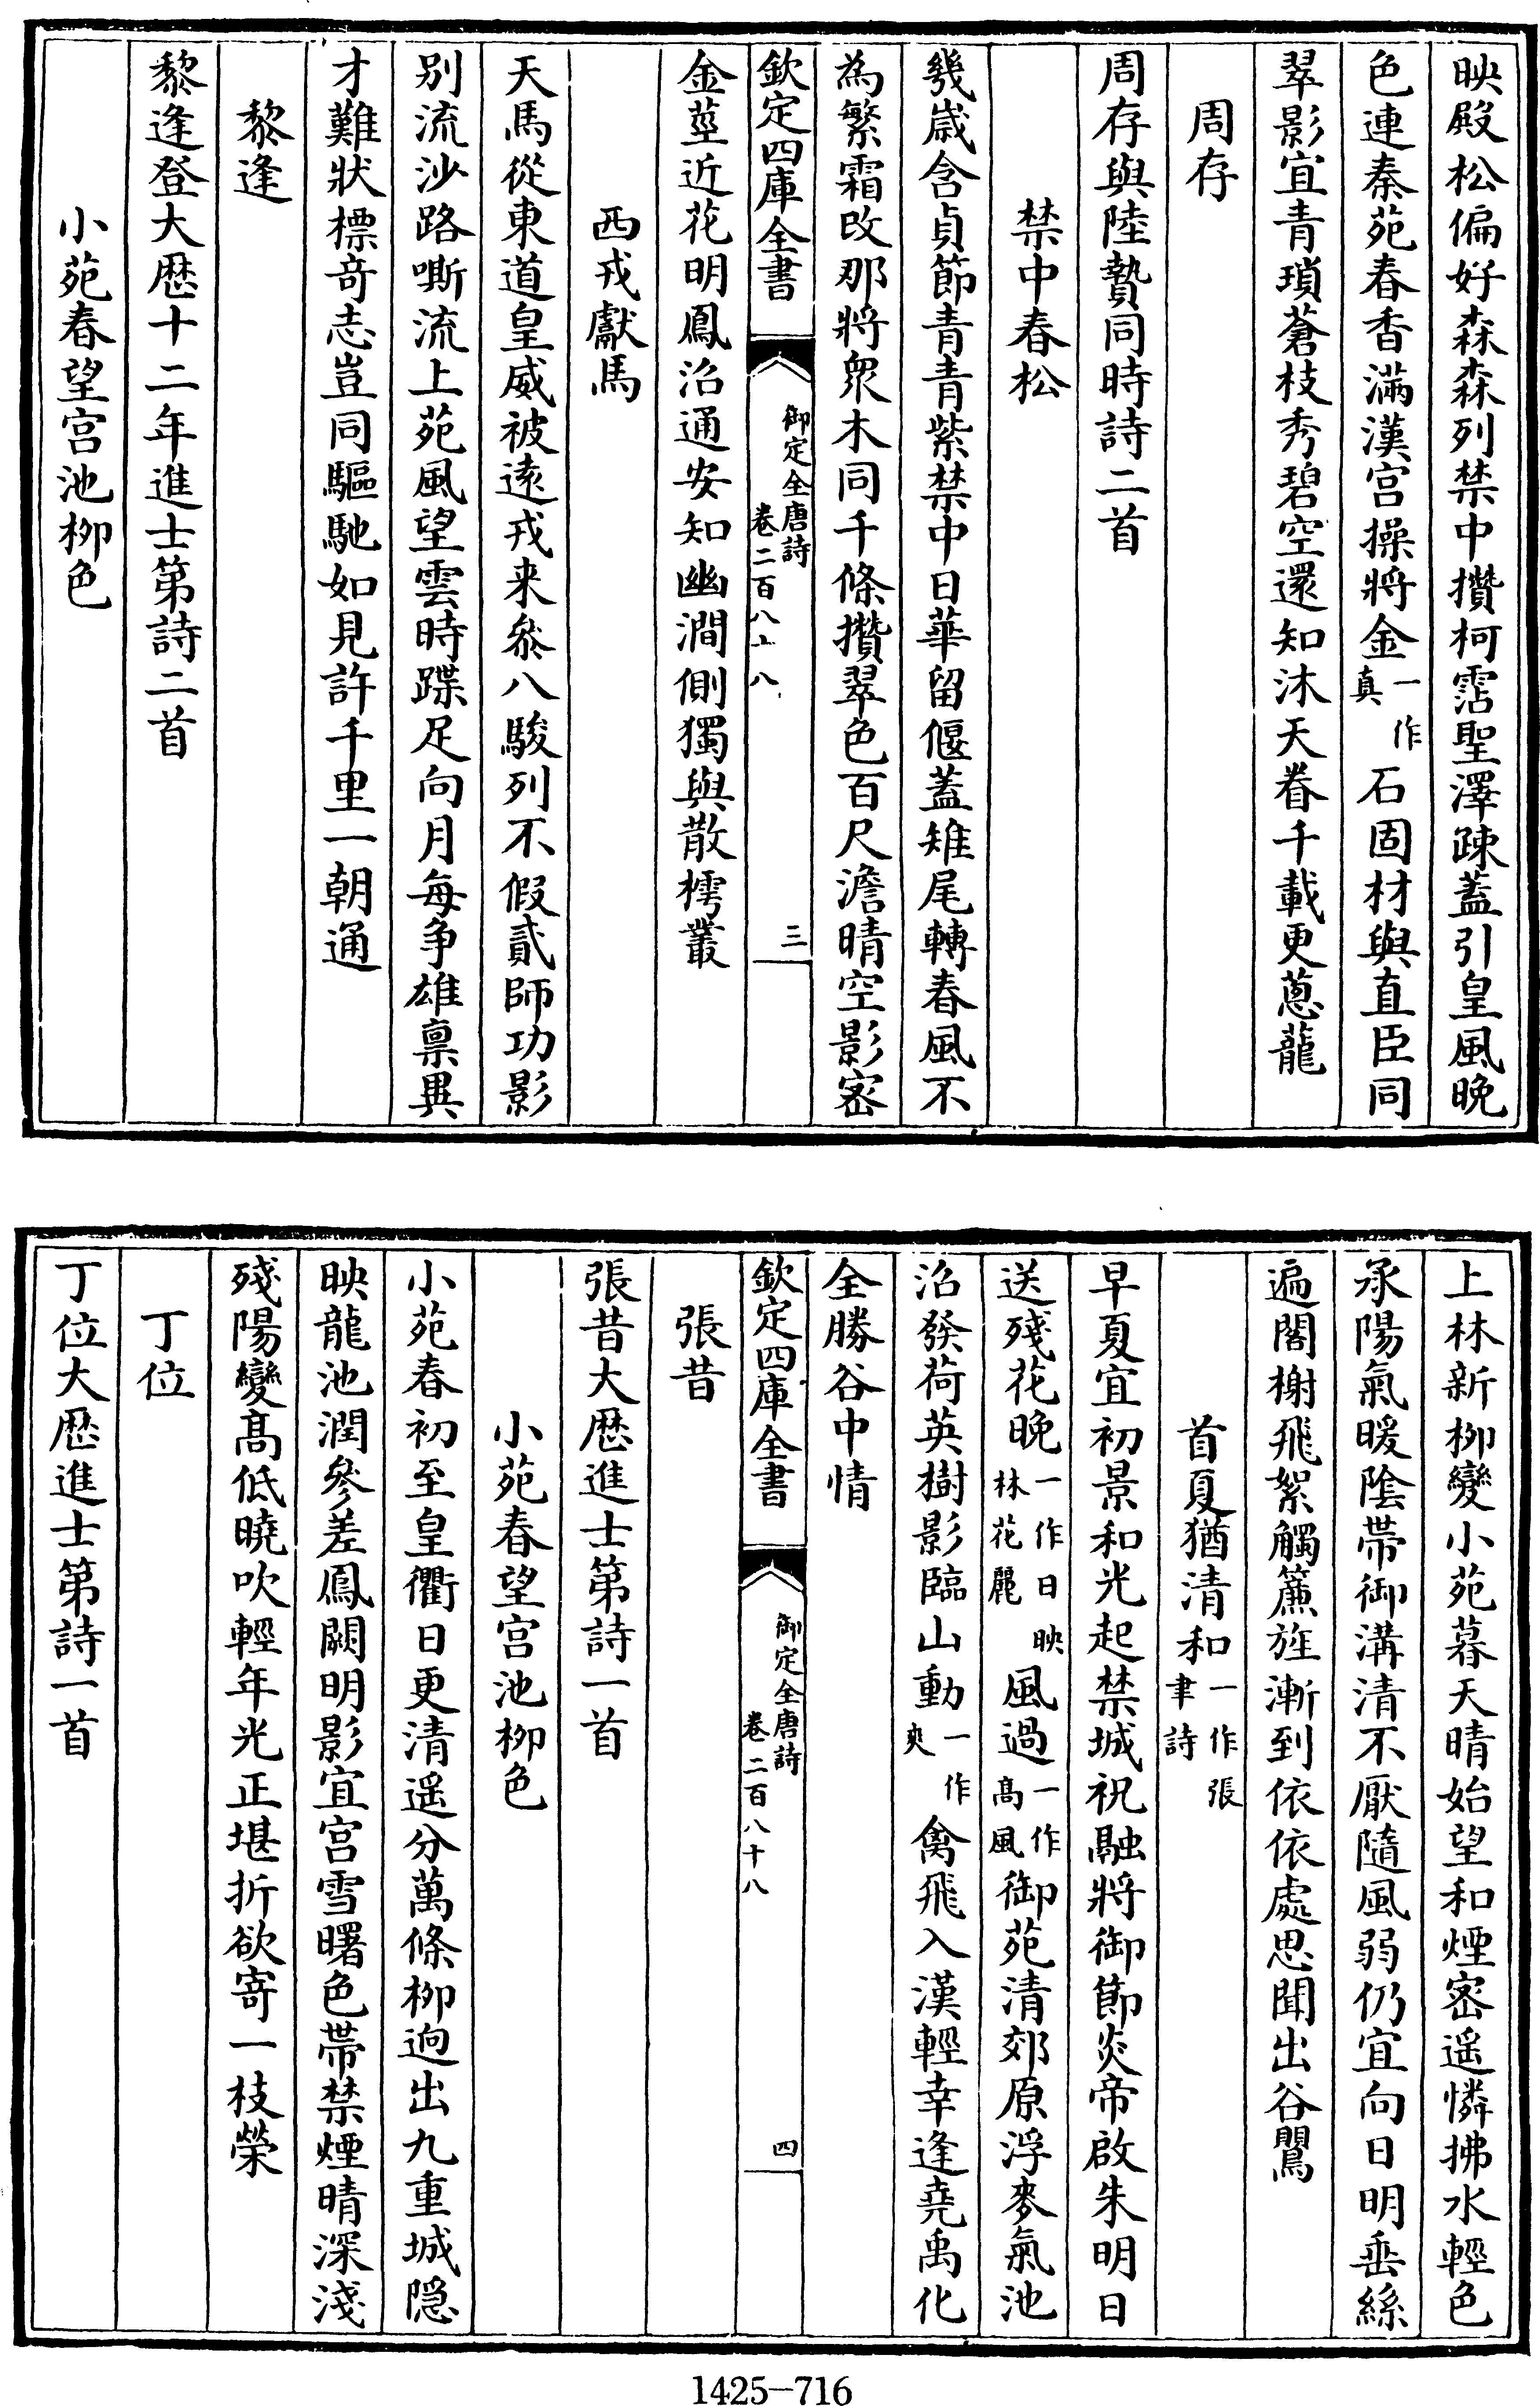 映殿松偏好森森列禁中攢柯霑聖澤疎蓋引皇風晩
色連秦苑春香滿漢宫操將金一作真石固材與直臣同
翠影宜青瑣蒼枝秀碧空還知沐天眷千載更蔥蘢
周存
周存與陸贄同時詩二首
禁中春松
幾歲含貞節青青紫禁中日華留偃蓋雉尾轉春風不
為繁霜改那將衆木同千條攢翠色百尺澹晴空影密
欽定四庫全書
御定全唐詩
卷二百八十八
三
金莖近花明鳳沼通安知幽澗側獨與散樗叢
西戎獻馬
天馬從東道皇威被逺戎来參八駿列不假貳師功影
别流沙路嘶流上苑風望雲時蹀足向月每争雄禀異
才難狀標奇志豈同驅馳如見許千里一朝通
黎逢
黎逢登大厯十二年進士第詩二首
小苑春望宫池栁色
上林新栁變小苑暮天晴始望和煙密遥憐拂水輕色
承陽氣暖陰帶御溝清不厭隨風弱仍宜向日明垂絲
遍閣榭飛絮觸簾旌漸到依依處思聞出谷鸎
首夏猶清和一作張聿詩
早夏宜初景和光起禁城祝融將御節炎帝啟朱明日
送殘花晩一作日映林花麗風過一作高風御苑清郊原浮麥氣池
沼發荷英樹影臨山動一作爽禽飛入漢輕幸逢堯禹化
全勝谷中情
欽定四庫全書
御定全唐詩
卷二百八十八
四
張昔
張昔大厯進士第詩一首
小苑春望宫池栁色
小苑春初至皇衢日更清遥分萬條栁逈出九重城隠
映龍池潤參差鳳闕明影宜宫雪曙色帶禁煙晴深淺
殘陽變髙低曉吹輕年光正堪折欲寄一枝榮
丁位
丁位大厯進士第詩一首
1425-716